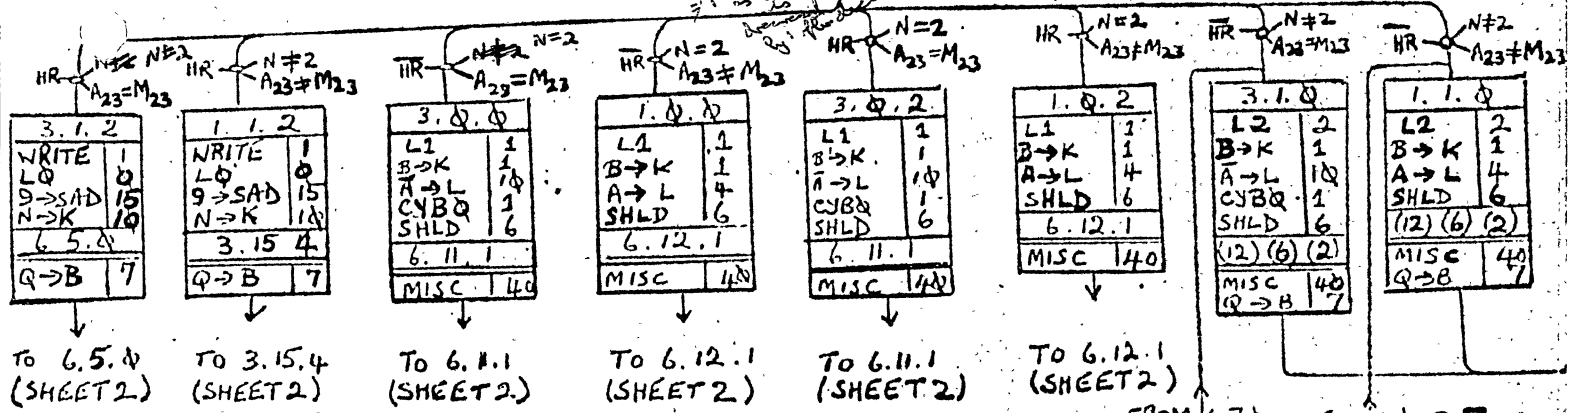 HR N≠2
A23=M23
3.1.2
WRITE 1
LØ Ø
9→SAD 15
N→K 1Ø
6.5.Ø
Q→B 7
TO 6.5.Ø
(SHEET 2)
HR N≠2
A23≠M23
1.1.2
WRITE 1
LØ Ø
9→SAD 15
N→K 1Ø
3.15 4
Q→B 7
TO 3.15.4
(SHEET 2)
H̅R̅ N=2
A23=M23
3.Ø.Ø
L1 1
B→K 1
A̅→L 1Ø
CYBØ 1
SHLD 6
6.11.1
MISC 40
TO 6.11.1
(SHEET 2)
H̅R̅ N=2
A23≠M23
1.Ø.Ø
L1 1
B→K 1
A→L 4
SHLD 6
6.12.1
MISC 4Ø
TO 6.12.1
(SHEET 2)
HR N=2
A23=M23
3.Ø.2
L1 1
B→K 1
A̅→L 1Ø
CYBØ 1
SHLD 6
6.11.1
MISC 4Ø
TO 6.11.1
(SHEET 2)
HR N=2
A23≠M23
1.Ø.2
L1 1
B→K 1
A→L 4
SHLD 6
6.12.1
MISC 40
TO 6.12.1
(SHEET 2)
H̅R̅ N≠2
A23=M23
3.1.Ø
L2 2
B→K 1
A̅→L 1Ø
CYBØ 1
SHLD 6
(12) (6) (2)
MISC 4Ø
Q→B 7
H̅R̅ N≠2
A23≠M23
1.1.Ø
L2 2
B→K 1
A→L 4
SHLD 6
(12) (6) (2)
MISC 4Ø
Q→B 7